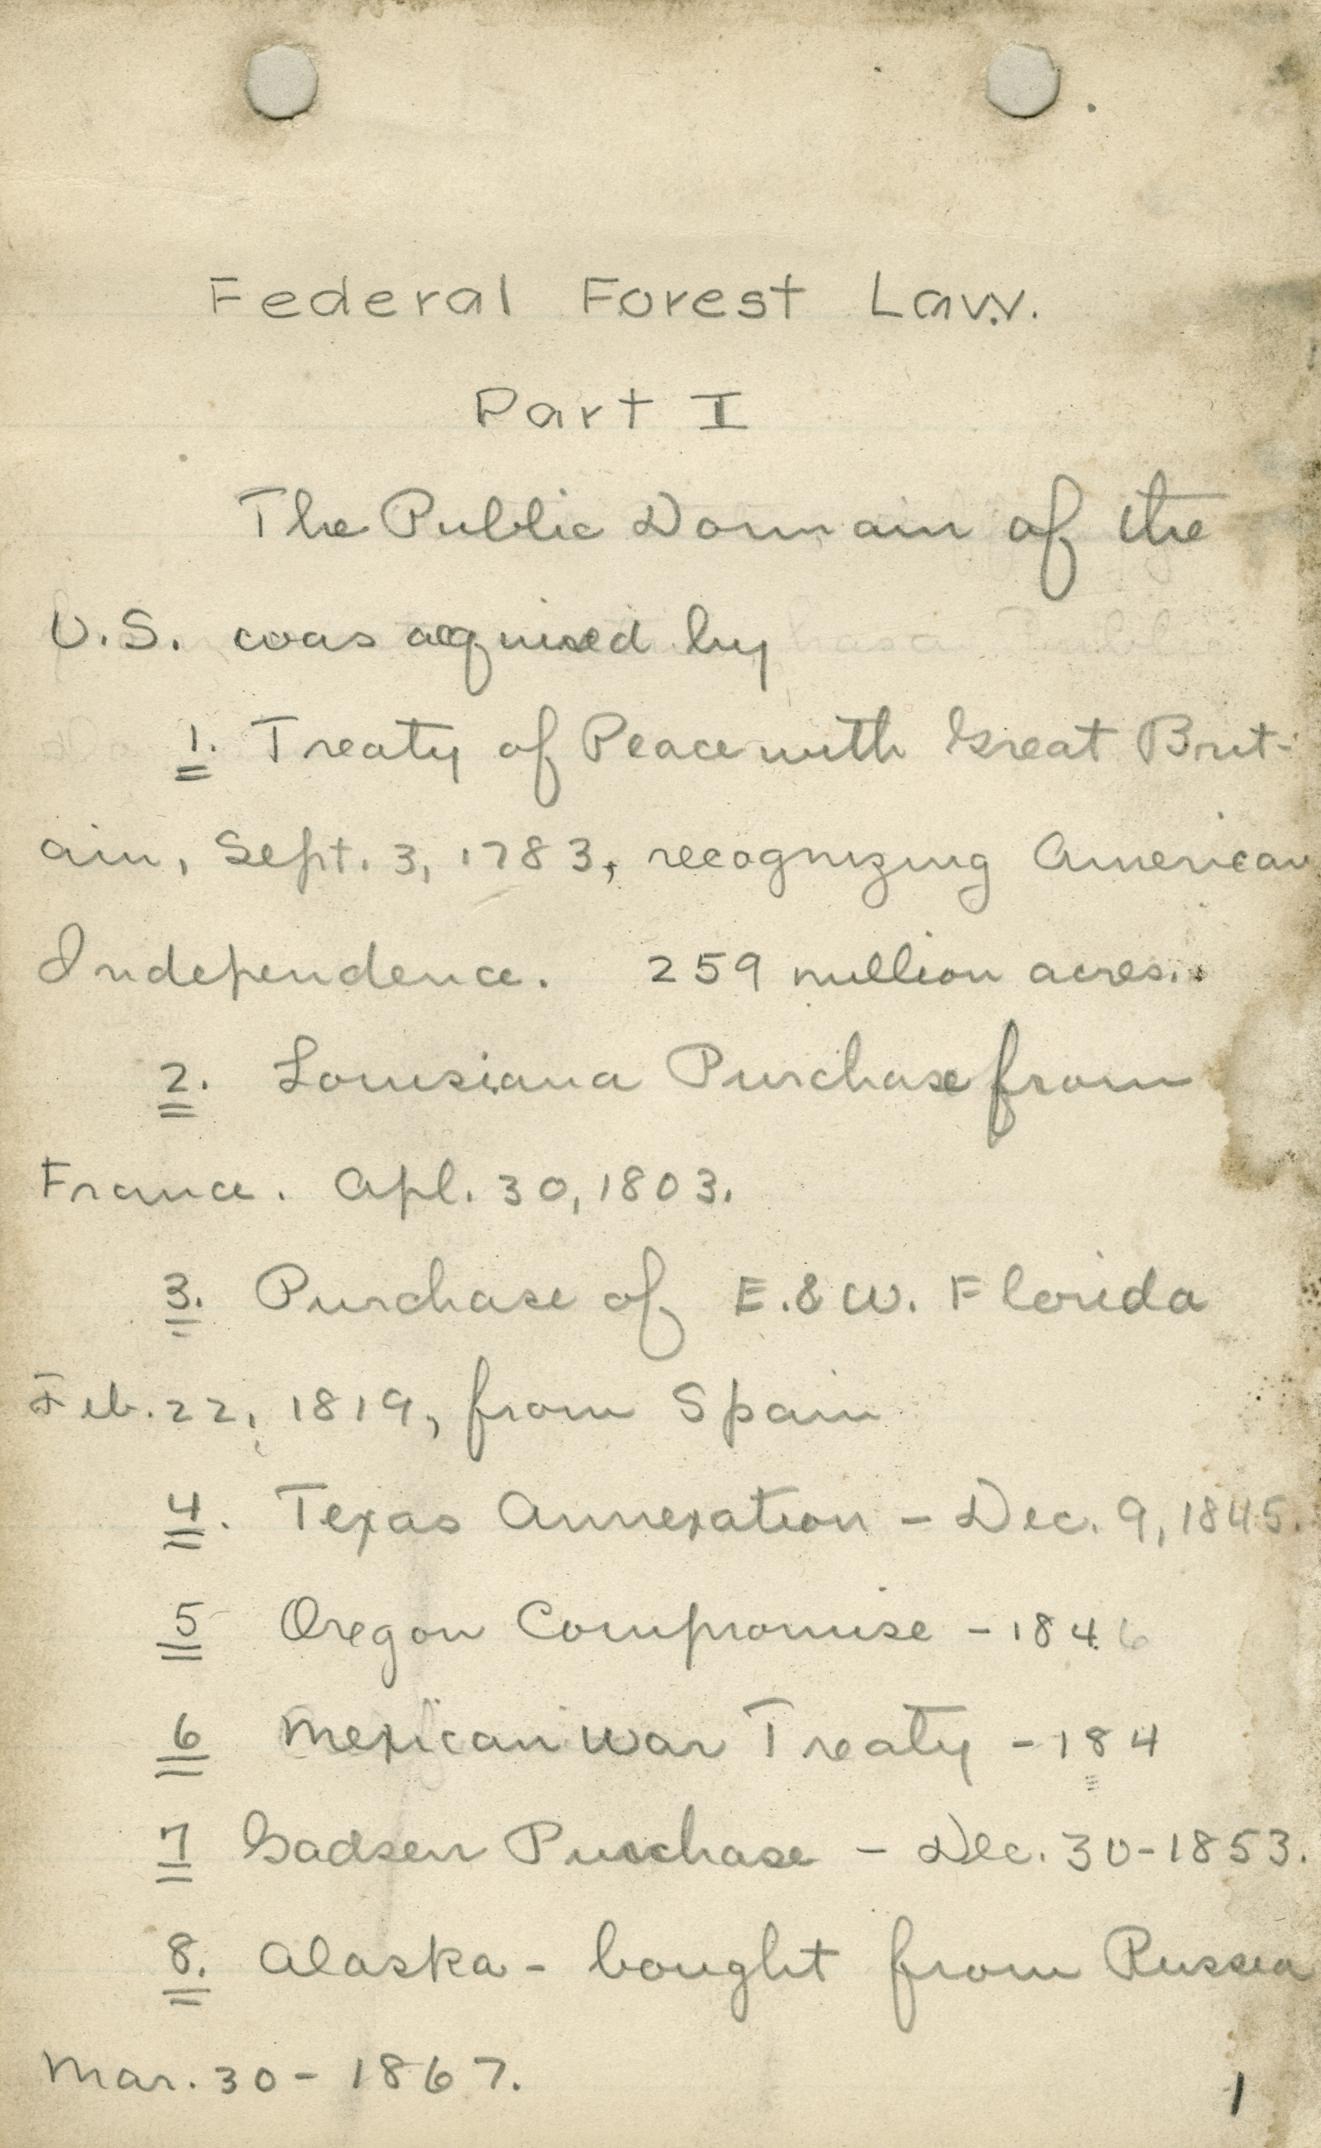 Federal Forest Law.
Part I
The Public Domain of the
U.S. was acquired by
1. Treaty of Peace with Great Brit-
ain, Sept. 3, 1783, recognizing American
Independence. 259 million acres.
2. Louisiana Purchase from
France. Apl. 30, 1803.
3. Purchase of E. & W. Florida
Feb. 22, 1819, from Spain
4. Texas Annexation - Dec. 9, 1845.
5 Oregon Compromise - 1846
6 Mexican War Treaty - 184
7 Gadsen Purchase - Dec. 30-1853.
8. Alaska - bought from Russia
Mar. 30 - 1867.
1